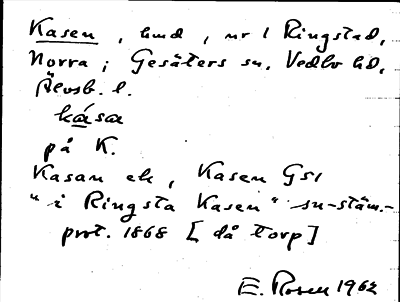 Kasen, hmd, nr 1 Ringstad,
Norra; Gesäters sn, Vedbo hd,
Älvsb. l.
kása
på K.
Kasan ek, Kasen Gs1
"i Ringsta Kasen" sn-stäm.-
prot. 1868 [då torp]
E. Rosen 1962